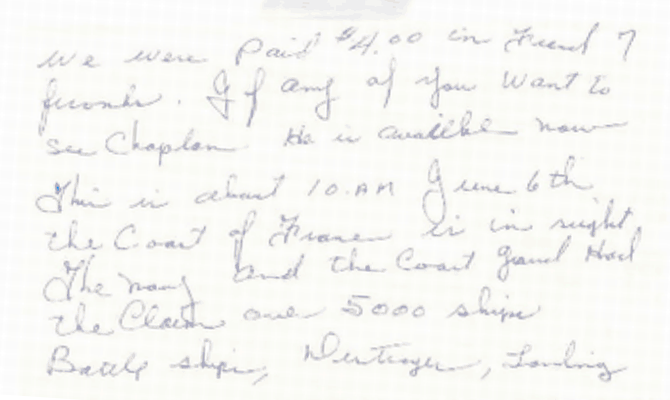 we were paid $4.00 in
. If any of you want to
see Chaplan He is availble now
This is about 10.AM June 6th
the Coast of France is in sight
The navy and the Coast Guard Had
the over 5000 ships
Battle ships, Destroyer, Landing